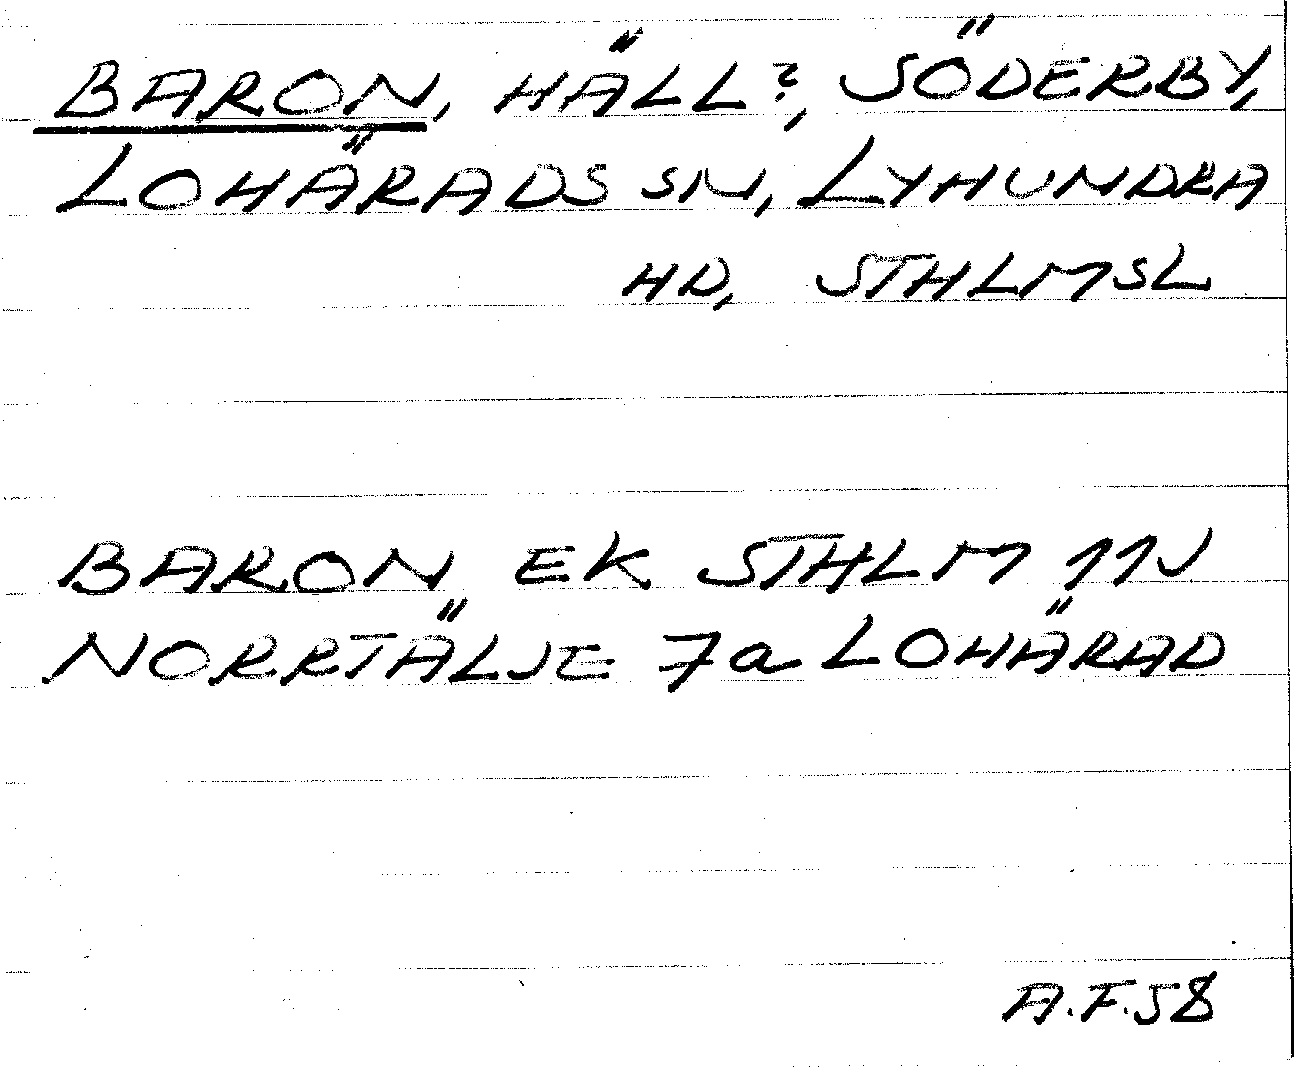 BARON, HÄLL?, SÖDERBY,
LOHÄRADS SN, LYHUNDRA
HD, STHLMSL
BARON EK STHLM 11J
NORRTÄLJE 7a LOHÄRAD
A.F.58